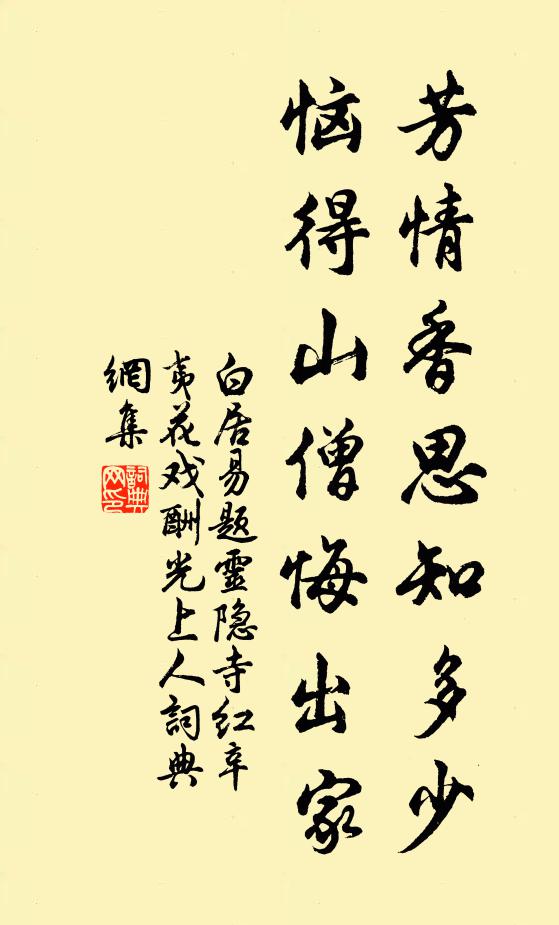 芳情香思知多少
恼得山僧悔出家
白居易题靈隐寺红辛
夷花戏酬光上人詞典
網集
詞典
网印